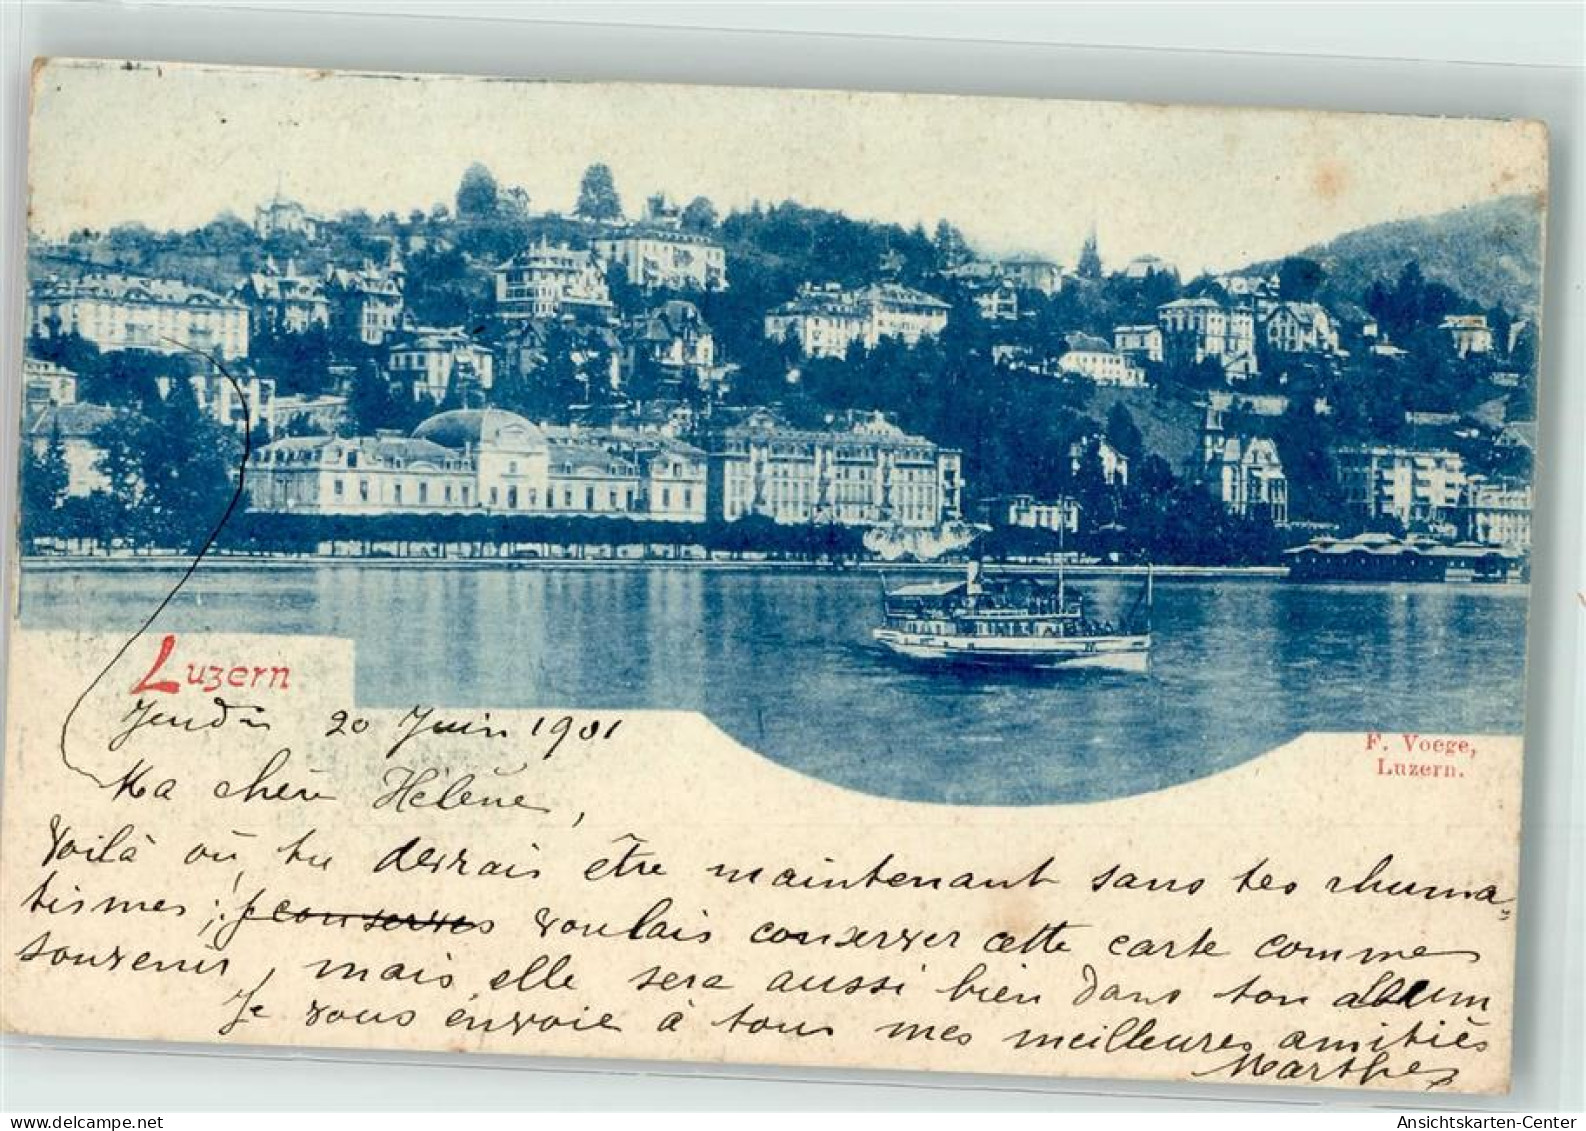 Luzern
F. Voege,
Luzern.
Jeudi 20 Juin 1901
Ma chère Hélène,
Voilà où tu devrais être maintenant sans tes rhuma-
tismes ; je conserves voulais conserver cette carte comme
souvenir, mais elle sera aussi bien dans ton album
Je vous envoie à tous mes meilleures amitiés
Marthe
oldthing.de
Ansichtskarten-Center